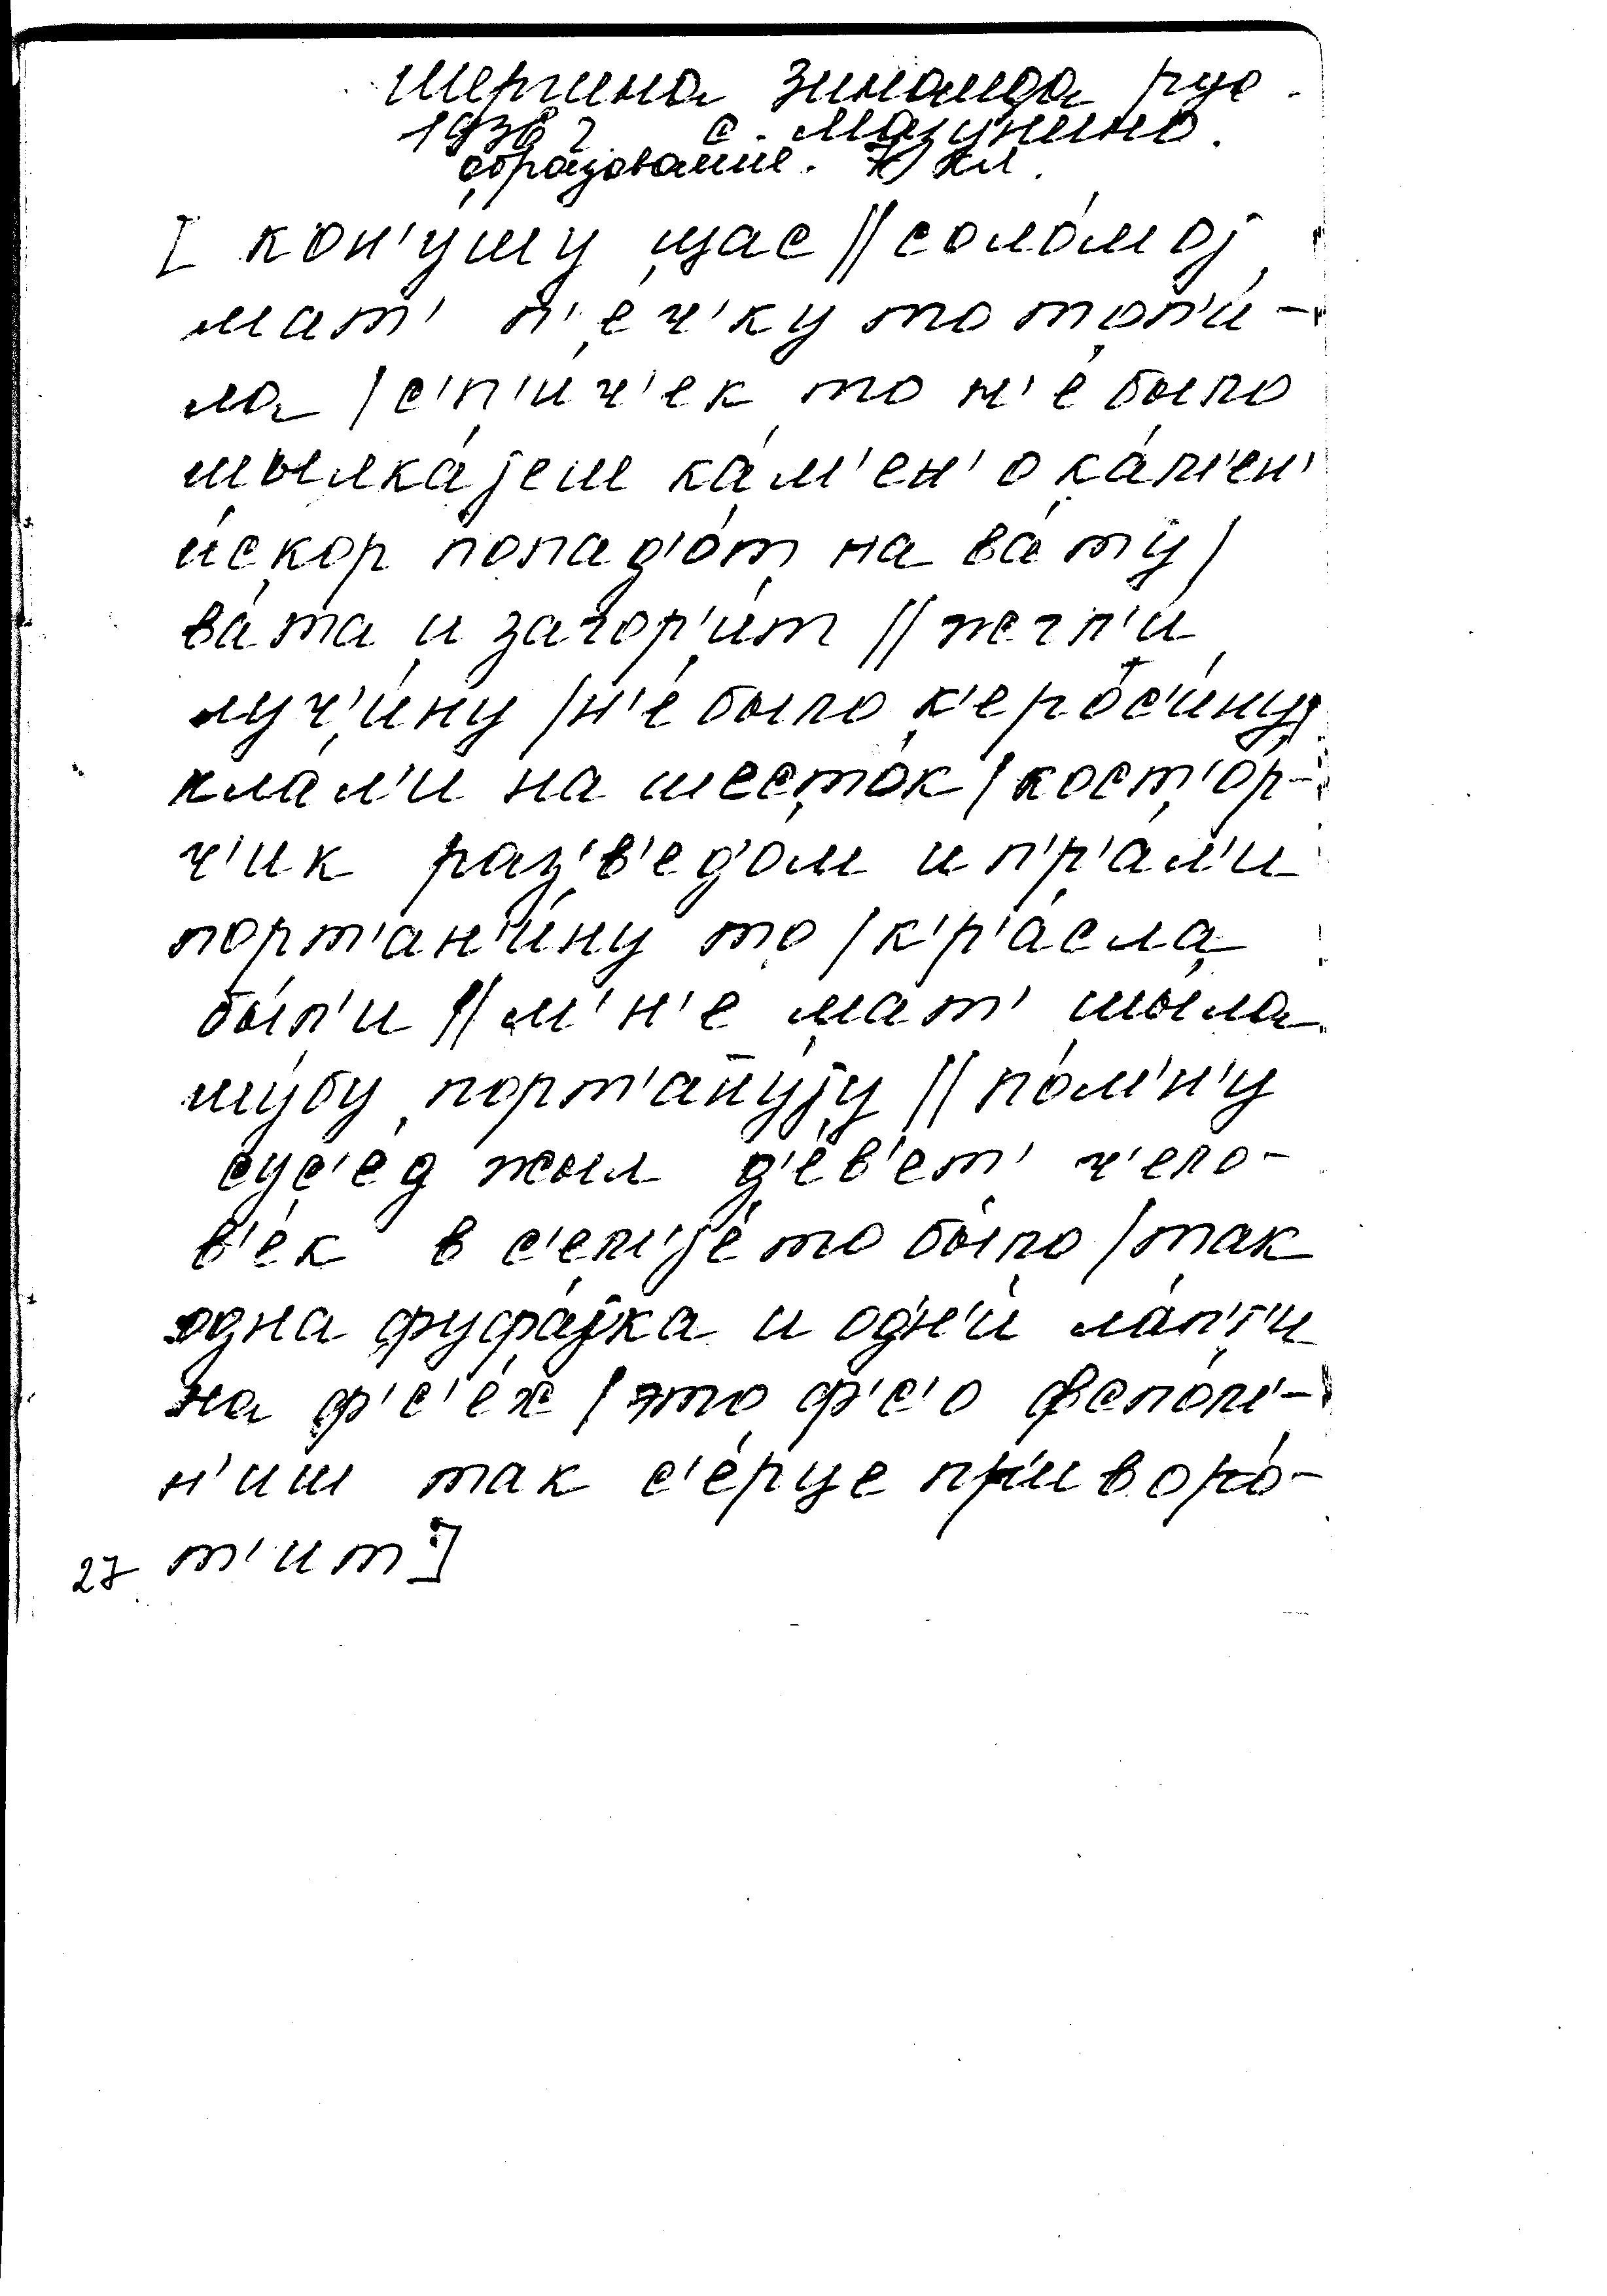 Шергина Зинаида рус.
1938 г с. Мазунино.
образование. 7 кл.
[ кон'у́шу щас || соло́мој
мат' п'е́ч'ку то топ'и́-
ла / с'п'и́ч'ек то н'е́ было
шылка́јеш ка́м'ен' о ка́м'ен'
и́скор попад'о́т на ва́ту /
ва́та и загор'и́т || жгл'и
луч'и́ну / н'е́ было к'ерос'и́ну /
кла́л'и на шесто́к / кост'ор-
ч'ик раз'в'ед'о́м и п'р'а́л'и
порт'ан'и́ну то / к'р'а́сла
бы́л'и || м'н'е мат' шы́ла
шу́бу порт'ану́ју || по́м'н'у
сус'е́д жыл д'е́в'ет' ч'ело-
в'е́к в с'ем'је́ то бы́ло / так
одна фуфа́јка и одн'и́ ла́п'т'и
на ф'с'е́х / это ф'с'о фспо́м'-
н'иш так с'е́рце п'р'иворо́-
т'ит ]
27